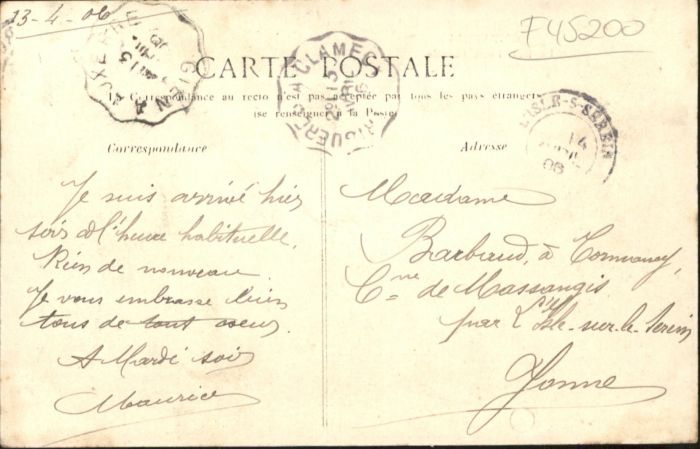 13-4-06
F45200
GIEN A AUXERRE
CLAMECY
CARTE POSTALE
La Correspondance au recto n'est pas acceptée par tous les pays étrangers
(se renseigner à la Poste)
L'ISLE-S-SEREIN
14
06
Correspondance
Adresse
Je suis arrivé hier
soir à l'heure habituelle.
Rien de nouveau
Je vous embrasse bien
tous de tout coeur.
A Mardi soir
Maurice
Madame
Barbaud, à
Cne de Massangis
par L'Isle-sur-le-Serein
Yonne